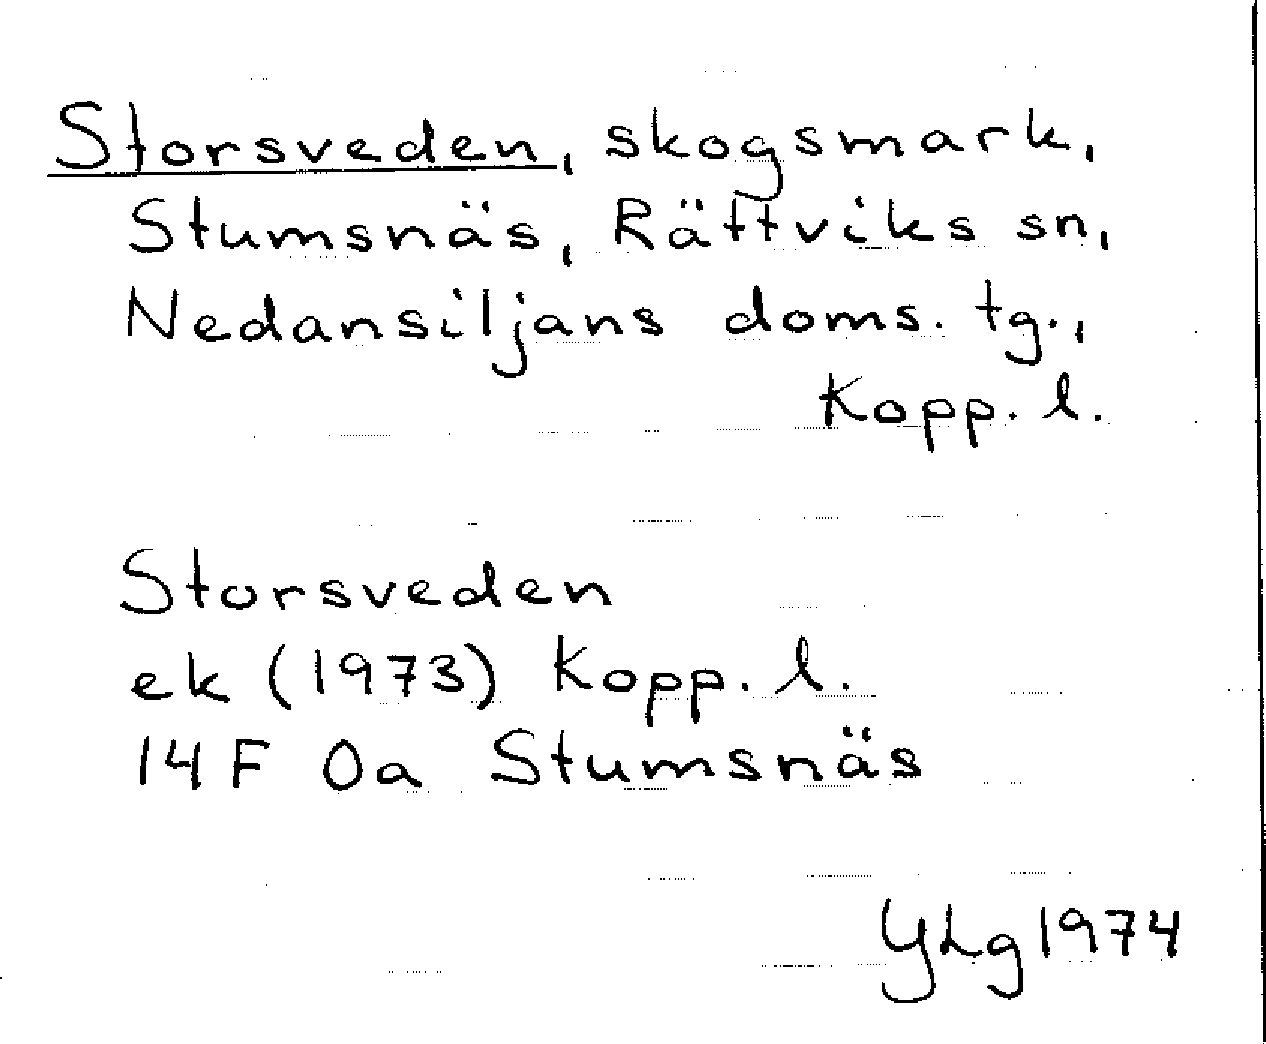 Storsveden, skogsmark,
Stumsnäs, Rättviks sn,
Nedansiljans doms. tg.,
Kopp. l.
Storsveden
ek (1973) Kopp. l.
14 F 0a Stumsnäs
YLg 1974